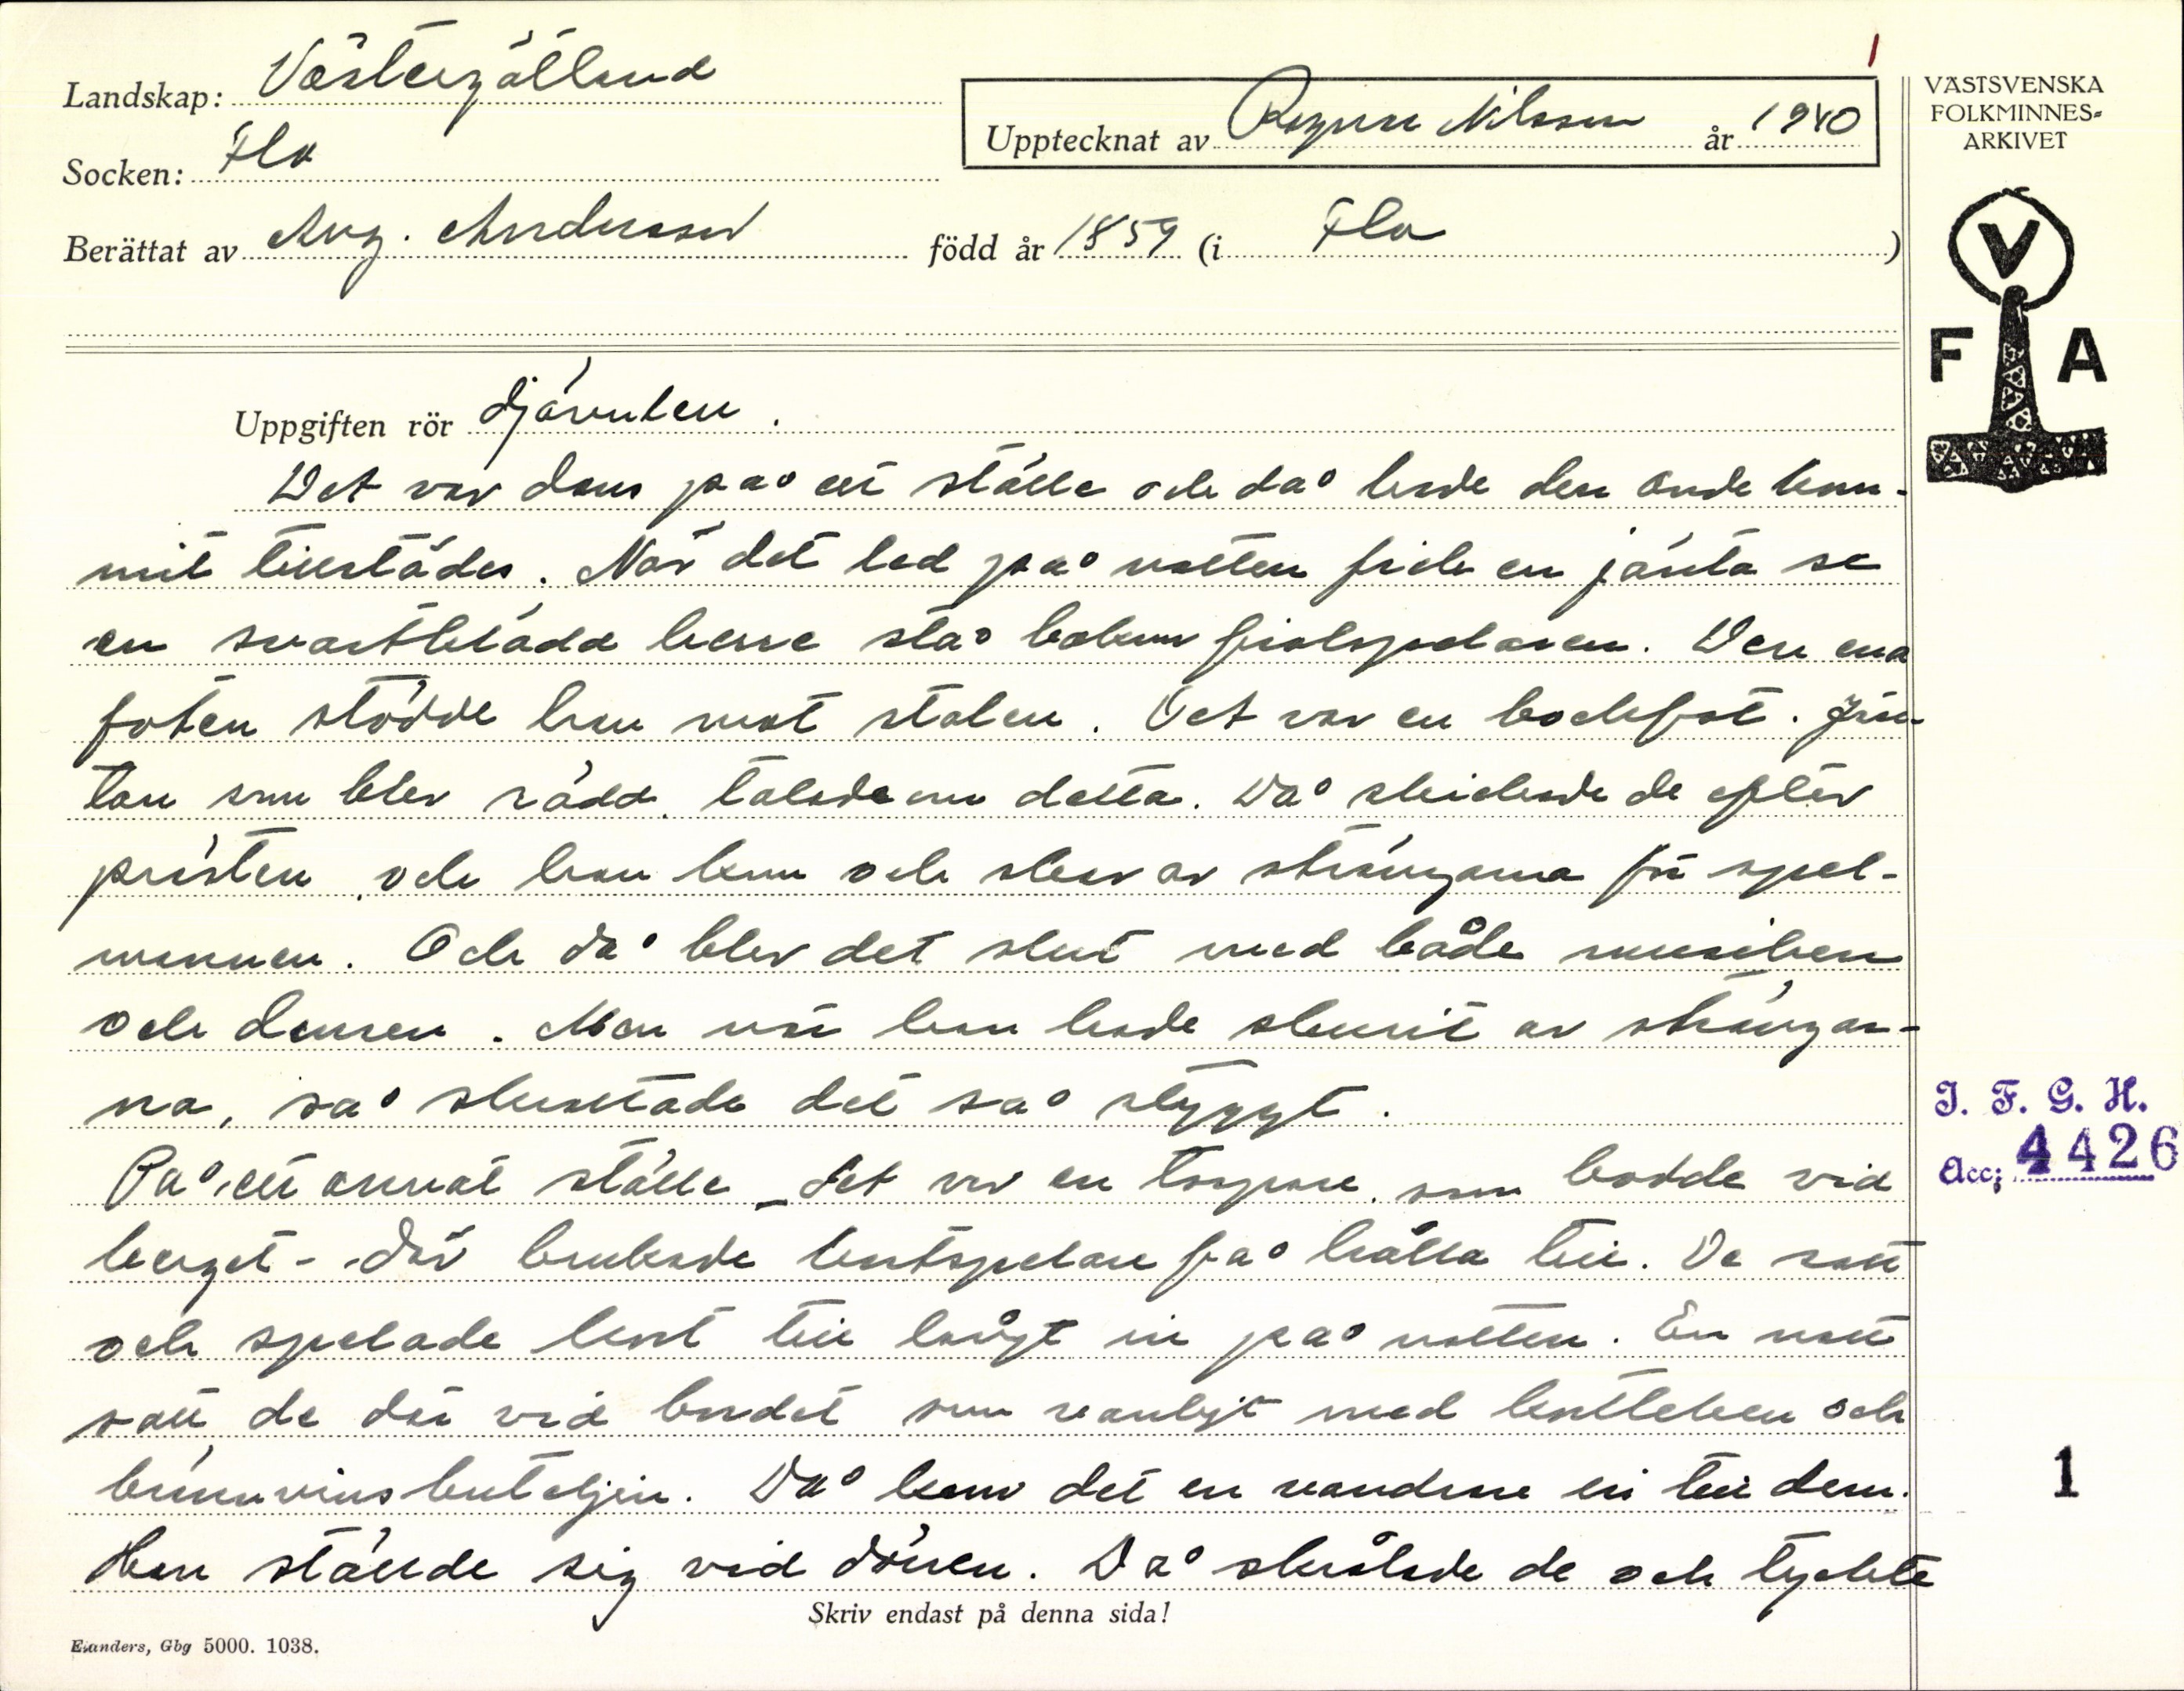 1
Landskap: Västergötland
Socken: Flo
Upptecknat av Ragnar Nilsson år 1940
Berättat av Aug. Andersson född år 1859 (i Flo)
VÄSTSVENSKA
FOLKMINNES-
ARKIVET
V
F A
Uppgiften rör djävulen.
Det var dans på ett ställe och då hade den onde kom-
mit tillstädes. När det led på natten fick en jänta se
en svartklädd herre stå bakom fiolspelaren. Den ena
foten stödde han mot stolen. Det var en bockfot. Jän-
tan som blev rädd talade om detta. Då skickade de efter
prästen, och han kom och skar av strängarna för spel-
mannen. Och då blev det slut med både musiken
och dansen. Men när han hade skurit av strängar-
na, så skrattade det så styggt.
På ett annat ställe – det var en torpare som bodde vid
berget – där brukade kortspelare få hålla till. De satt
och spelade kort till långt in på natten. En natt
satt de där vid bordet som vanligt med kortleken och
brännvinsbuteljen. Då kom det en vandrare in till dem.
Han ställde sig vid dörren. Då skrålade de och tyckte
I. F. G. H.
Acc; 4426
1
Skriv endast på denna sida!
Elanders, Gbg 5000. 1038.